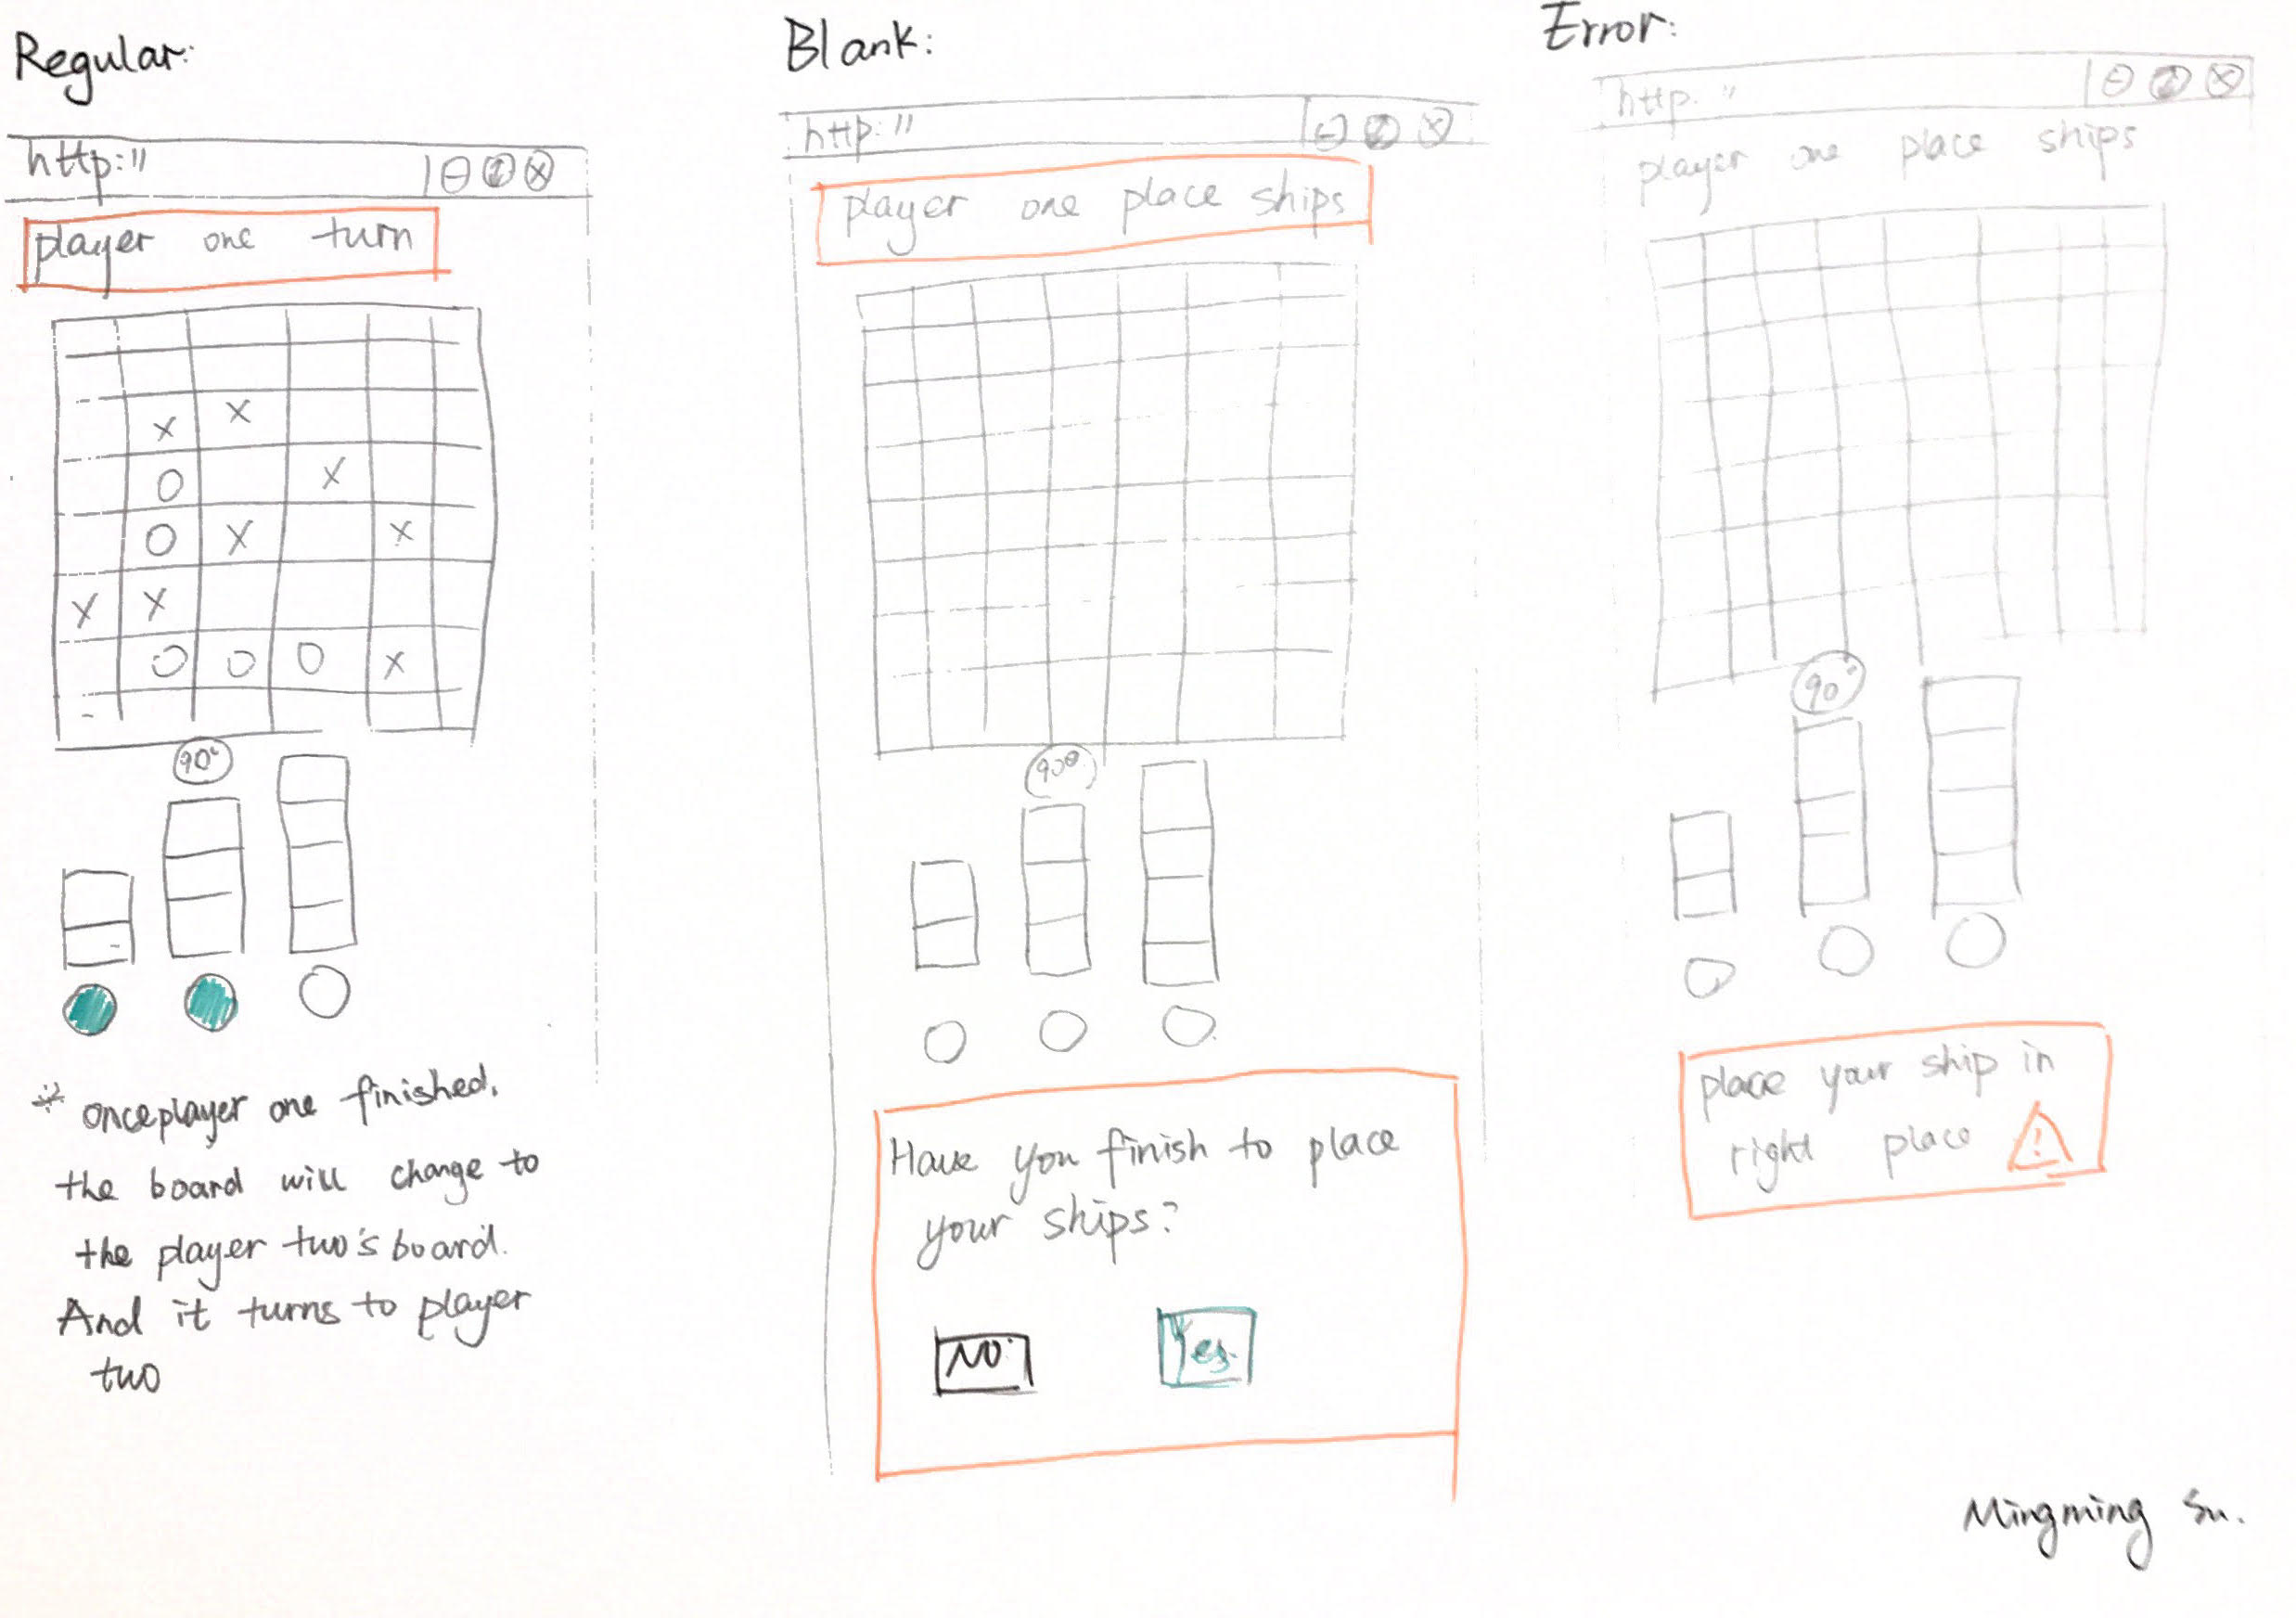 Regular:
http://
player one turn
x x
O x
O x x
x x
O O O x
90°
* once player one finished.
the board will change to
the player two's board.
And it turns to player
two
Blank:
http://
player one place ships
90°
Have you finish to place
your ships?
NO.
Yes.
Error:
http://
player one place ships
90°
place your ship in
right place !
Mingming Su.